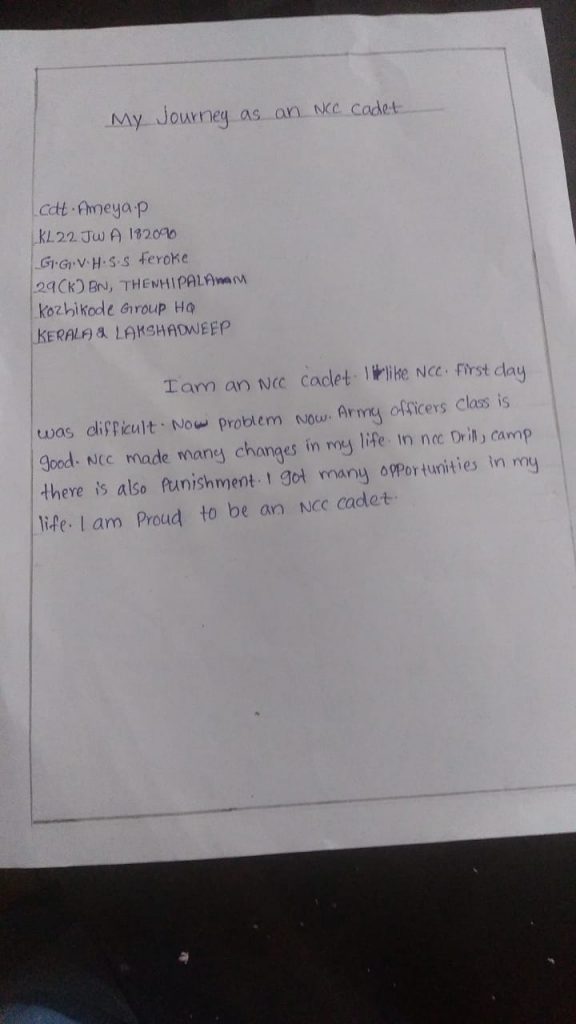 My Journey as an NCC Cadet
Cdt. Ameya.P
KL22 JWA 182090
G.G.V.H.S.S Feroke
29(K) BN, THENHIPALAM
Kozhikode Group HQ
KERALA & LAKSHADWEEP
I am an NCC cadet. I like NCC. First day
was difficult. Now problem Now. Army officers class is
good. NCC made many changes in my life. In ncc Drill, camp
there is also Punishment. I got many opportunities in my
life. I am Proud to be an NCC cadet.